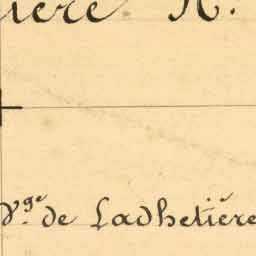 ière N.
V.ge de Ladhetière